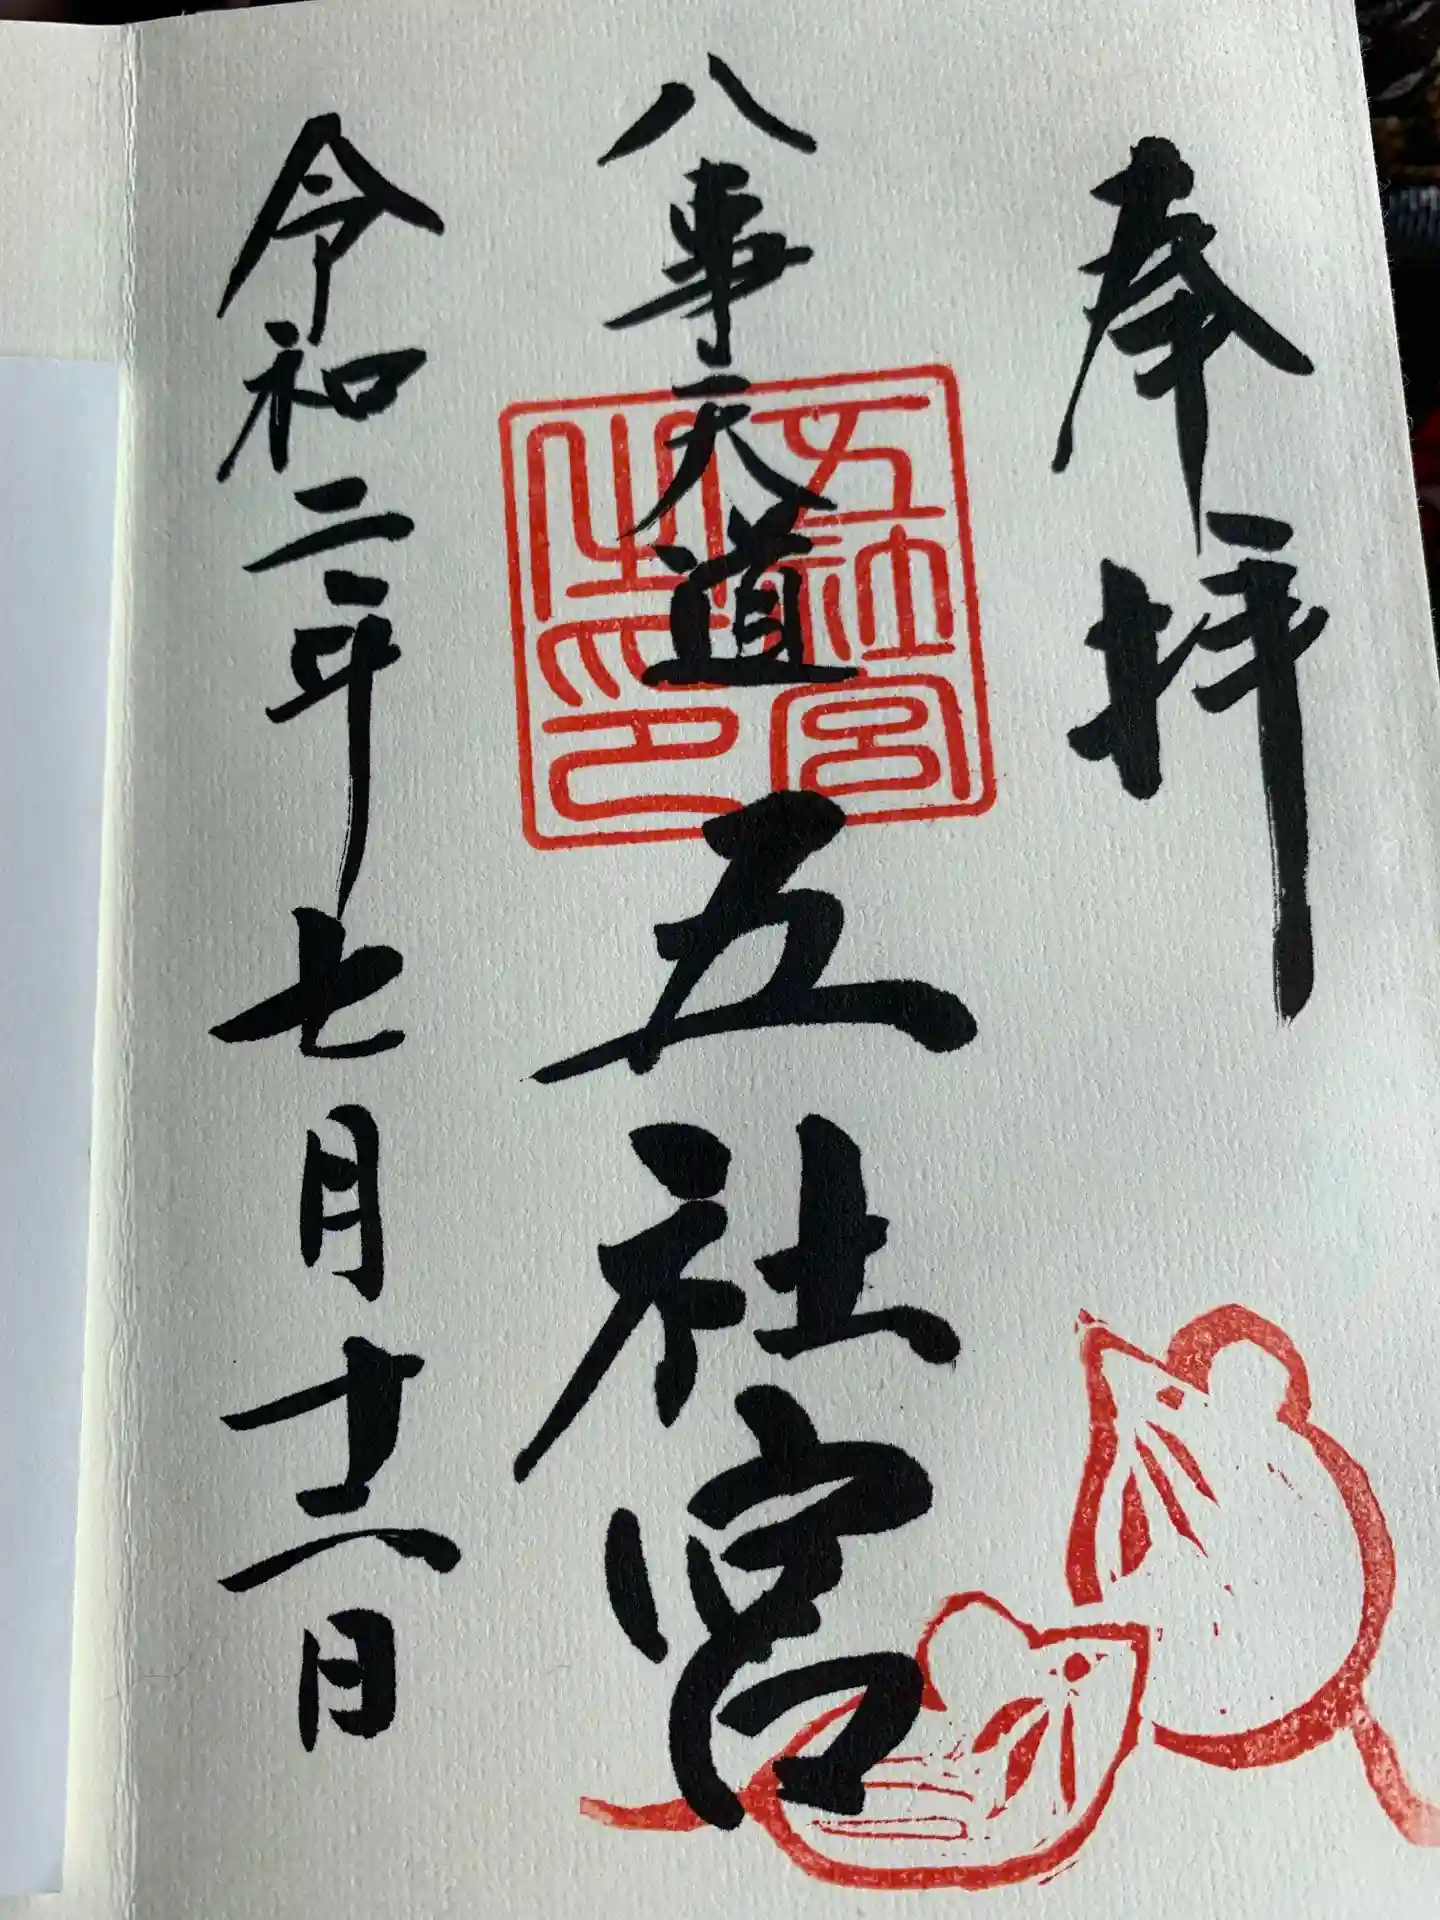 奉拝
八事天道
五社宮
五社宮之印
令和二年七月十二日